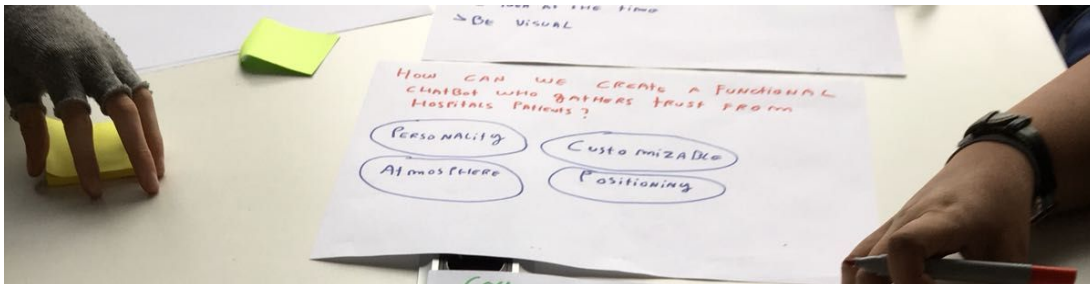 AT THE TIME
> BE VISUAL
HOW CAN WE CREATE A FUNCTIONAL
CHATBOT WHO GATHERS TRUST FROM
HOSPITALS PATIENTS?
PERSONALITY
CUSTOMIZABLE
ATMOSPHERE
POSITIONING